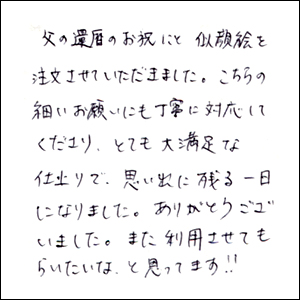 父の還暦のお祝にと 似顔絵を
注文させていただきました。こちらの
細いお願いにも丁寧に対応して
くださり、とても大満足な
仕上りで、思い出に残る一日
になりました。ありがとうござ
いました。また利用させても
らいたいな、と思ってます!!